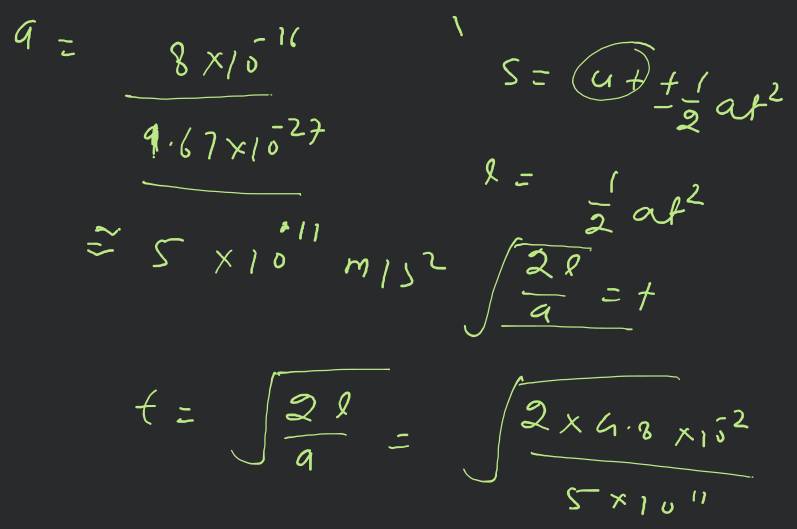 a = 8 × 10^-16
1.67 × 10^-27
≅ 5 × 10^11 m/s²
s = ut + 1/2 at²
l = 1/2 at²
√(2l/a) = t
t = √(2l/a) = √(2 × 4.8 × 10^-2 / 5 × 10^11)